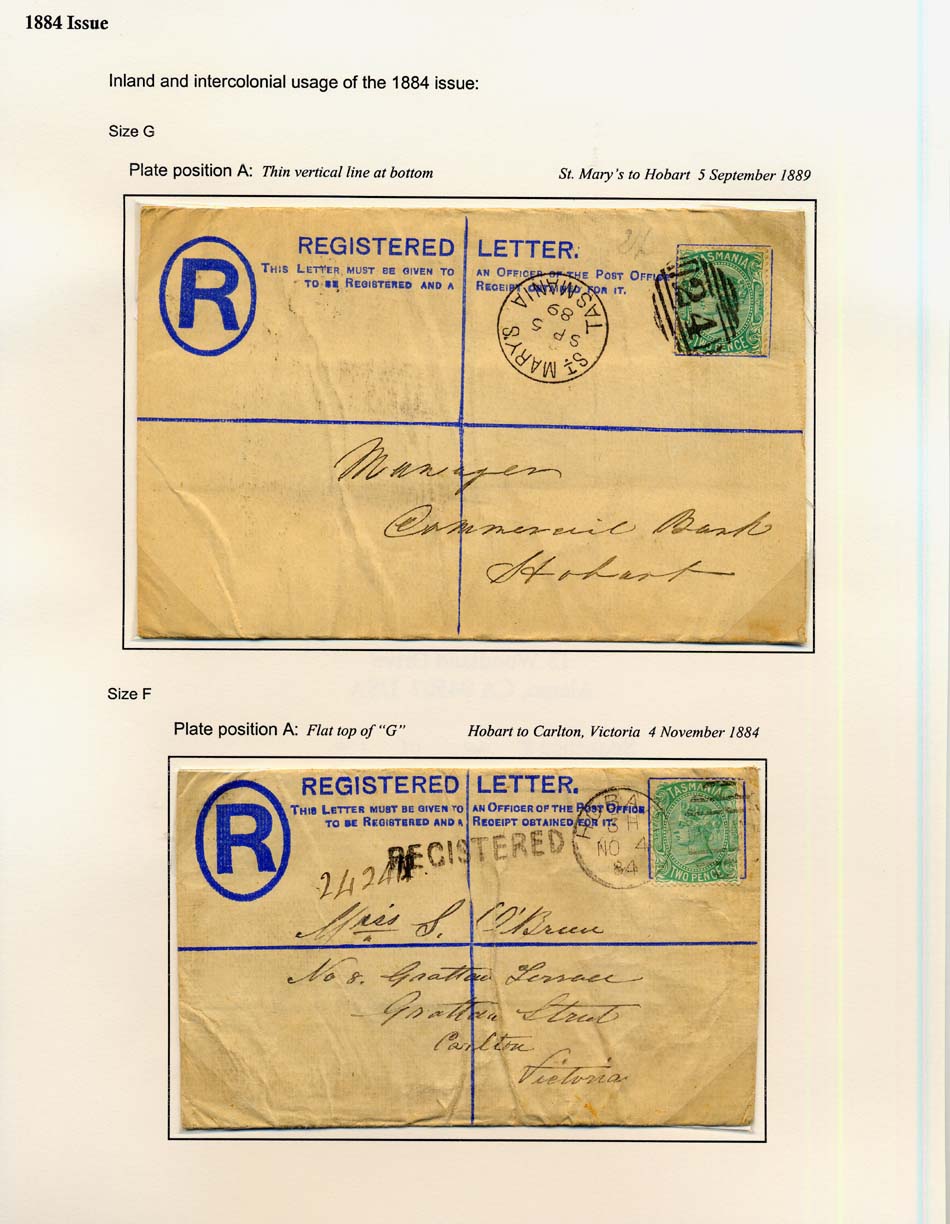 1884 Issue
Inland and intercolonial usage of the 1884 issue:
Size G
Plate position A: Thin vertical line at bottom
St. Mary's to Hobart 5 September 1889
R
REGISTERED LETTER.
THIS LETTER MUST BE GIVEN TO AN OFFICER OF THE POST OFFICE
TO BE REGISTERED AND A RECEIPT OBTAINED FOR IT.
ST. MARYS
TASMANIA
SP 5
89
TASMANIA
24
TWO PENCE
Manager
Commercial Bank
Hobart
Size F
Plate position A: Flat top of "G"
Hobart to Carlton, Victoria 4 November 1884
R
REGISTERED LETTER.
THIS LETTER MUST BE GIVEN TO AN OFFICER OF THE POST OFFICE
TO BE REGISTERED AND A RECEIPT OBTAINED FOR IT.
REGISTERED
HOBA
3 H
NO 4
84
TASMANIA
TWO PENCE
Miss S. O'Brien
No 8. Grattan Terrace
Grattan Street
Carlton
Victoria